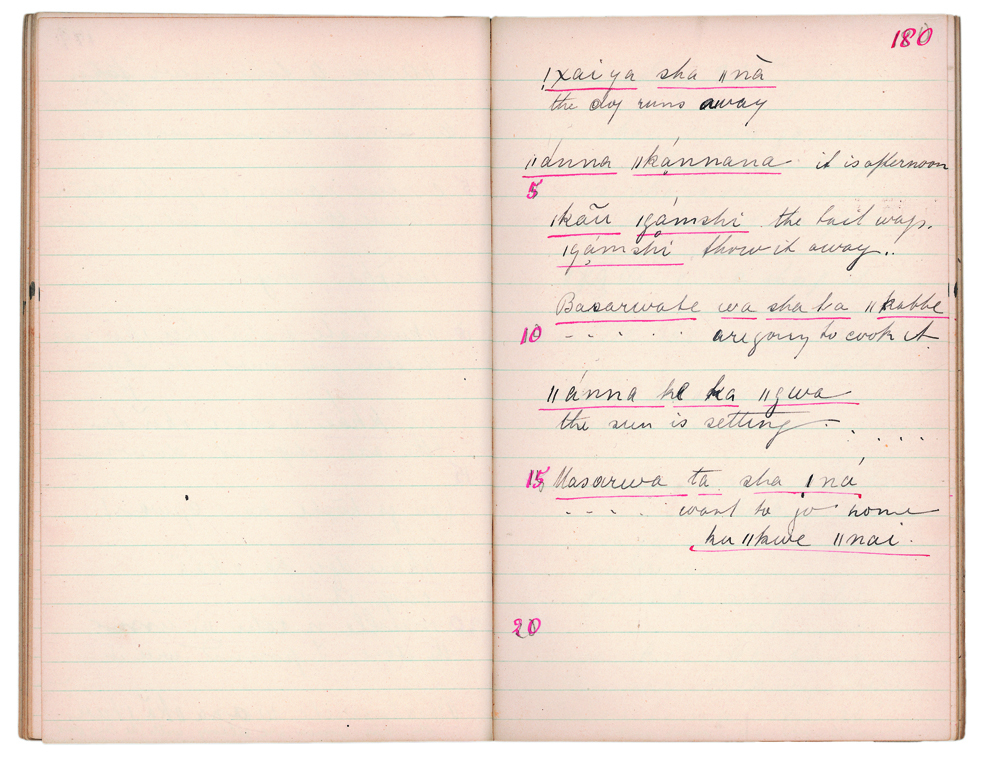 180
!xaiya sha ǁnā
the dog runs away
ǁánna ǁkánnana it is afternoon
5
ǀkãu ǀgámshi the tail wags.
ǀgámshi throw it away..
Basarwate wa sha ta ǁkabbe
10 - - . . . are going to cook it
ǁánna ke ka ǁgwa
the sun is setting
15 Masarwa ta sha ǀná
- - - . want to go home
ku ǁkwe ǁnai.
20